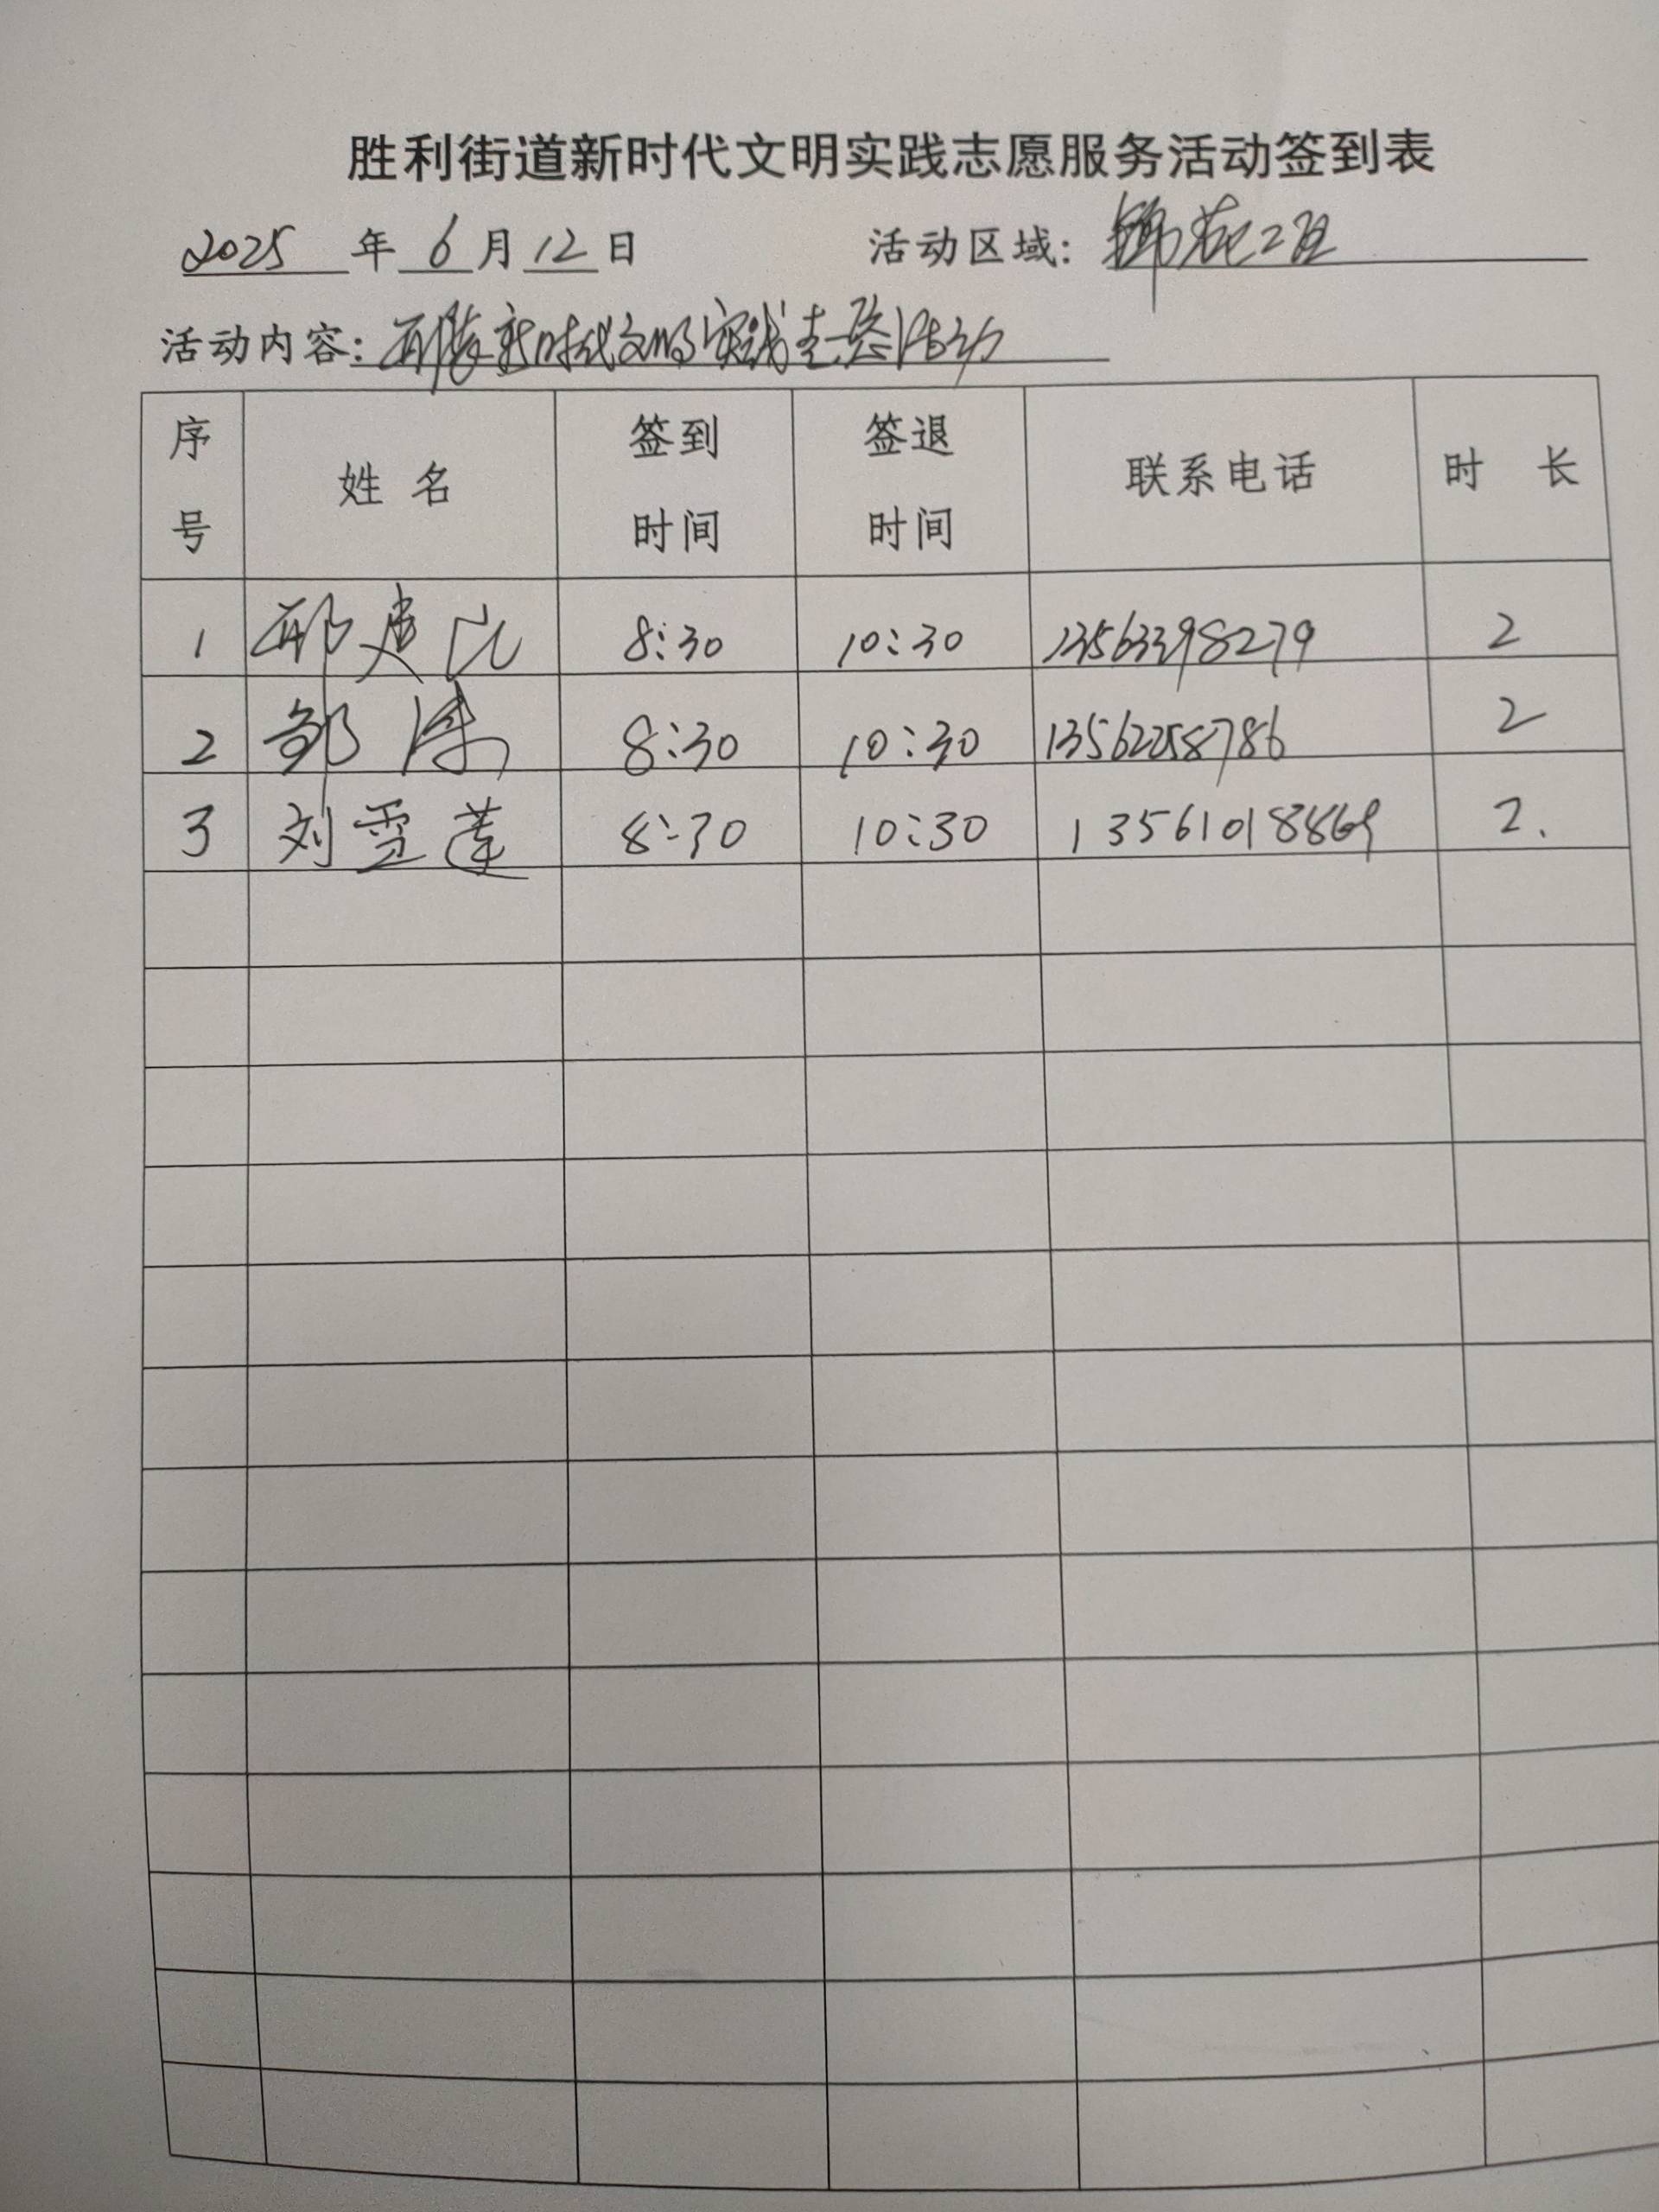 胜利街道新时代文明实践志愿服务活动签到表
2025 年 6 月 12 日 活动区域: 锦苑二区
活动内容: 新时代文明实践志愿活动
序号 姓名 签到时间 签退时间 联系电话 时长
1 邢建民 8:30 10:30 13563398279 2
2 邹涛 8:30 10:30 13562258786 2
3 刘雪莲 8:30 10:30 13561018869 2.